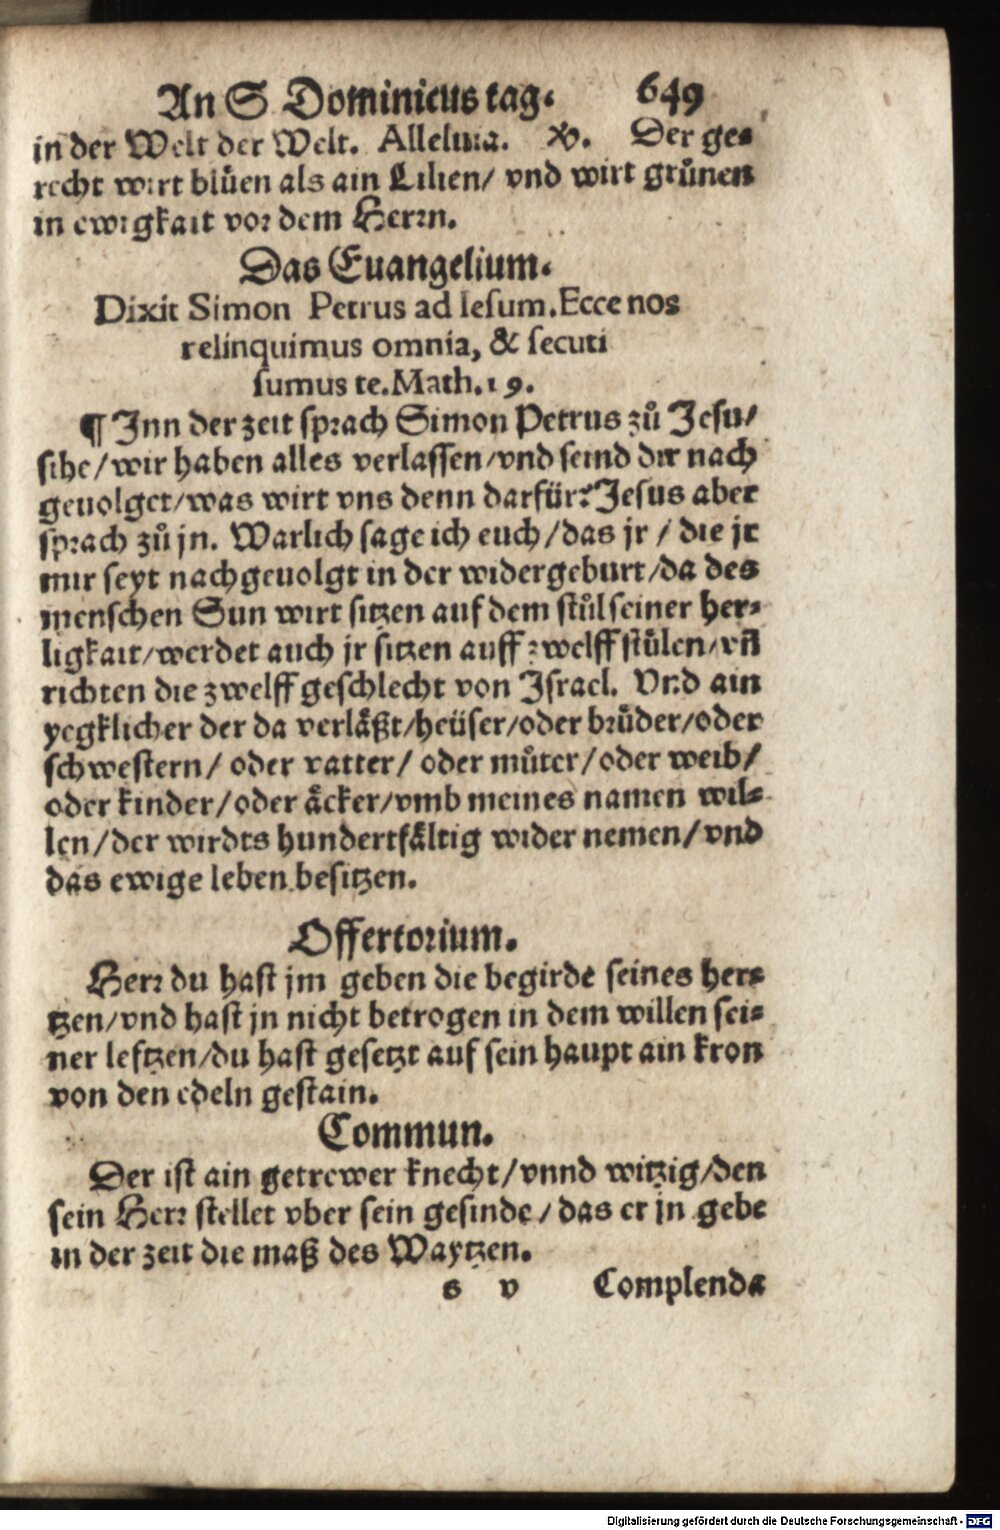 An S Dominicus tag. 649
in der Welt der Welt. Alleluia. ℣. Der ge⸗
recht wirt blüen als ain Lilien/ vnd wirt grünen
in ewigkait vor dem Herrn.
Das Euangelium.
Dixit Simon Petrus ad Iesum. Ecce nos
relinquimus omnia, & secuti
sumus te. Math. 19.
¶ Inn der zeit sprach Simon Petrus zů Jesu/
sihe/ wir haben alles verlassen/ vnd seind dir nach
geuolget/ was wirt vns denn darfür? Jesus aber
sprach zů jn. Warlich sage ich euch/ das jr/ die jr
mir seyt nachgeuolgt in der widergeburt/ da des
menschen Sun wirt sitzen auf dem stůl seiner her⸗
ligkait/ werdet auch jr sitzen auff zwelff stůlen/ vñ
richten die zwelff geschlecht von Israel. Vnd ain
yegklicher der da verläßt/ heüser/ oder brüder/ oder
schwestern/ oder vatter/ oder můter/ oder weib/
oder kinder/ oder äcker/ vmb meines namen wil⸗
len/ der wirdts hundertfältig wider nemen/ vnd
das ewige leben besitzen.
Offertorium.
Herr du hast jm geben die begirde seines her⸗
tzen/ vnd hast jn nicht betrogen in dem willen sei⸗
ner leftzen/ du hast gesetzt auf sein haupt ain kron
von den edeln gestain.
Commun.
Der ist ain getrewer knecht/ vnnd witzig/ den
sein Herr stellet vber sein gesinde/ das er jn gebe
in der zeit die maß des Waytzen.
s v Complenda
Digitalisierung gefördert durch die Deutsche Forschungsgemeinschaft - DFG